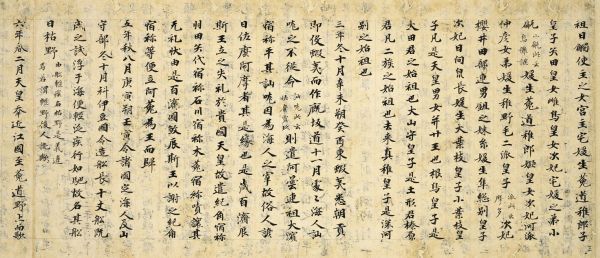 祖日觸使主之女宮主宅媛生菟道稚郎子
皇子矢田皇女雌鳥皇女次妃宅媛之弟小
甂媛生菟道稚郎姬皇女次妃河派
仲彦女弟媛生稚野毛二派皇子次妃
櫻井田部連男鉏之妹糸媛生隼総別皇子
次妃日向泉長媛生大葉枝皇子小葉枝皇
子凡是天皇男女并廿王也根鳥皇子是
大田君之始祖也大山守皇子是土形君榛原
君凡二族之始祖也去来真稚皇子是深河
別之始祖也
三年冬十月辛未朔癸酉東蝦夷悉朝貢
即役蝦夷而作厩坂道十一月處々海人訕
哤之不従命則遣阿曇連祖大濱
宿祢平其訕哤因為海人之宰故俗人諺
曰佐麼阿摩者其是縁也是歳百濟辰
斯王立之失礼於貴國天皇故遣紀角宿祢
羽田矢代宿祢石川宿祢木菟宿祢嘖譲其
无礼状由是百濟國敦辰斯王以謝之紀角
宿祢等便立阿花為王而歸
五年秋八月庚寅朔壬寅令諸國定海人及山
守部冬十月科伊豆國令造船長十丈船既
成之試浮于海便軽泛疾行如馳故名其船
曰枯野由船軽疾名枯野是義違
焉若謂軽野後人訛歟
六年春二月天皇幸近江國至菟道野上而歌